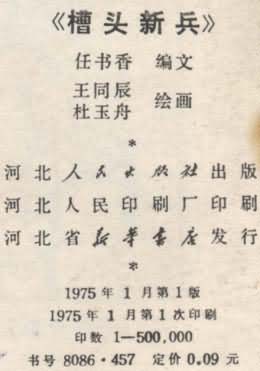 《槽头新兵》
任书香 编文
王同辰
杜玉舟 绘画
*
河北人民出版社出版
河北人民印刷厂印刷
河北省新华书店发行
*
1975年1月第1版
1975年1月第1次印刷
印数 1—500,000
书号 8086·457 定价 0.09 元